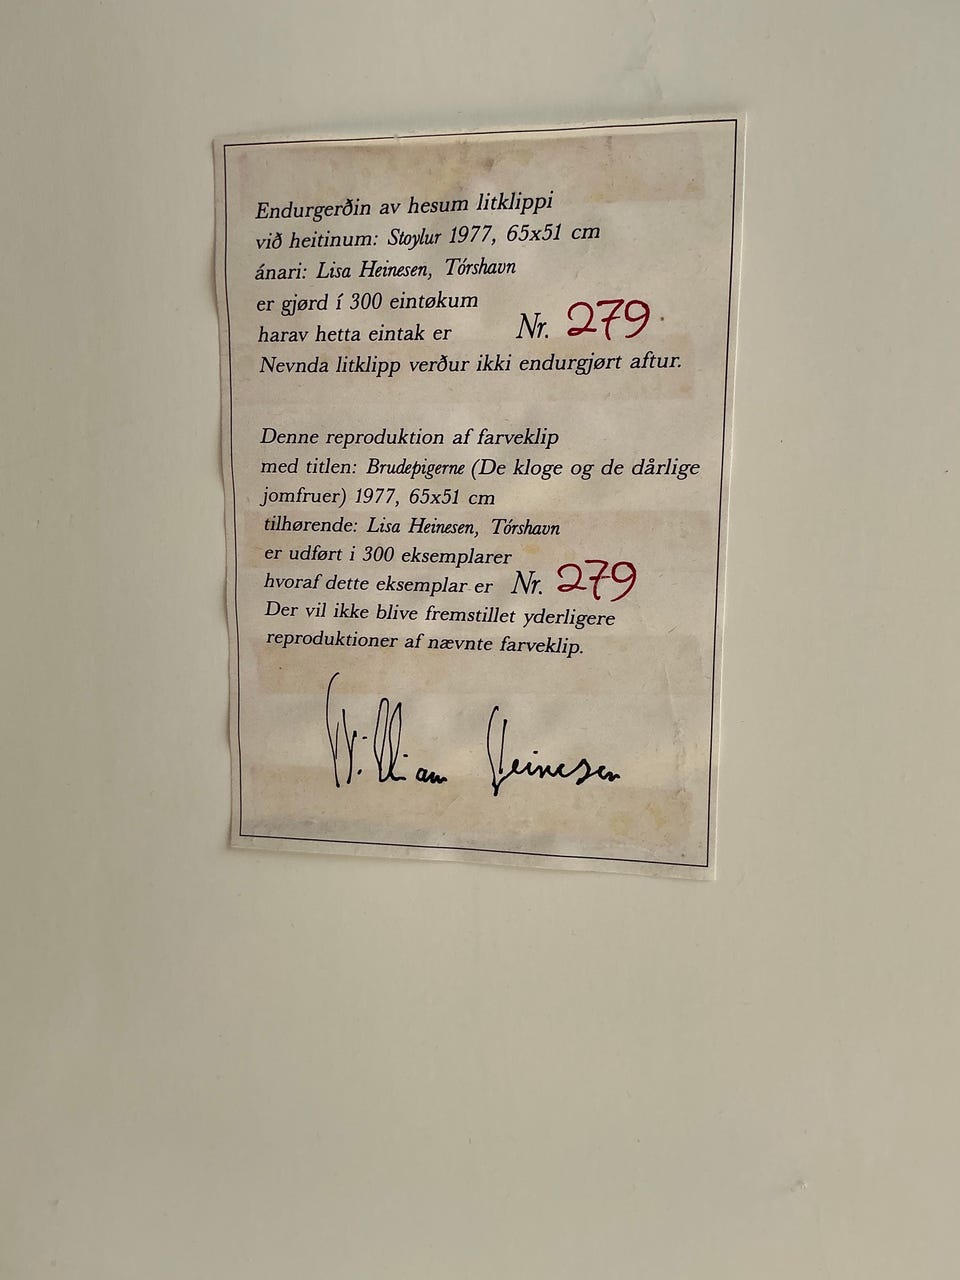 Endurgerðin av hesum litklippi
við heitinum: Stoylur 1977, 65x51 cm
ánari: Lisa Heinesen, Tórshavn
er gjørd í 300 eintøkum
harav hetta eintak er Nr. 279
Nevnda litklipp verður ikki endurgjørt aftur.
Denne reproduktion af farveklip
med titlen: Brudepigerne (De kloge og de dårlige
jomfruer) 1977, 65x51 cm
tilhørende: Lisa Heinesen, Tórshavn
er udført i 300 eksemplarer
hvoraf dette eksemplar er Nr. 279
Der vil ikke blive fremstillet yderligere
reproduktioner af nævnte farveklip.
William Heinesen